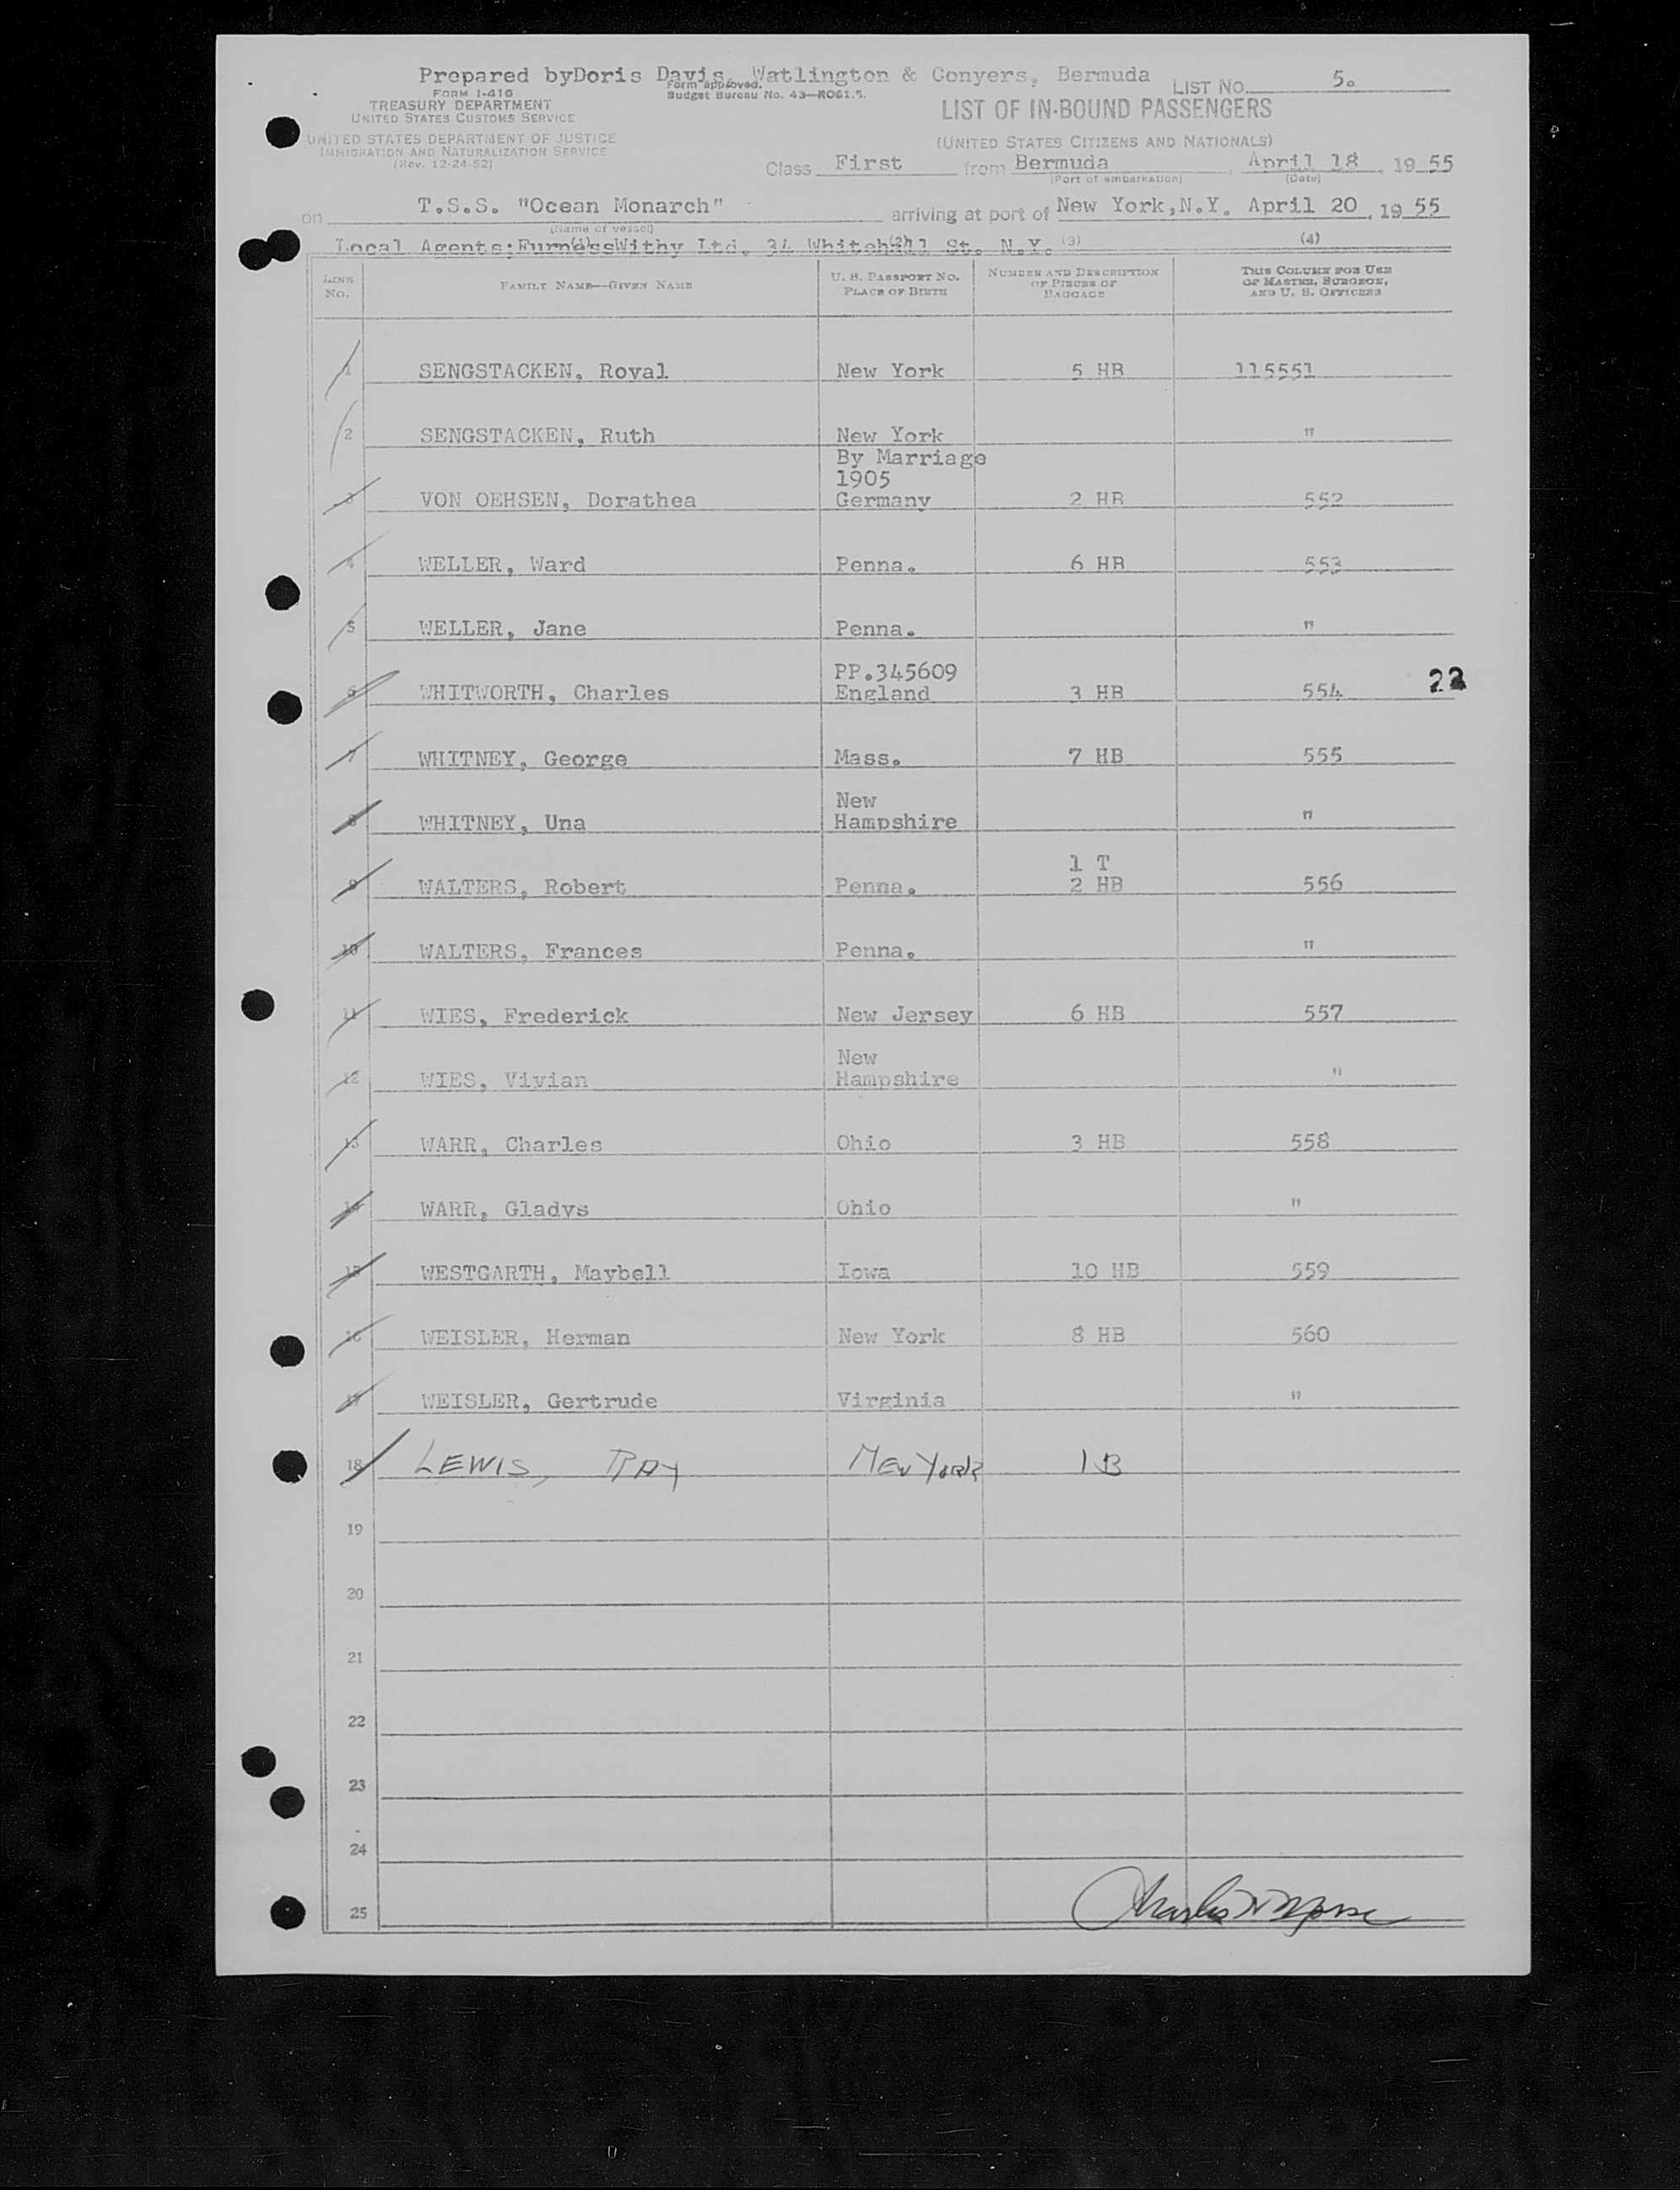 Prepared byDoris Davis, Watlington & Conyers, Bermuda
LIST NO. 5.
FORM I-416
Form approved.
Budget Bureau No. 43—R061.5.
TREASURY DEPARTMENT
UNITED STATES CUSTOMS SERVICE
LIST OF IN-BOUND PASSENGERS
UNITED STATES DEPARTMENT OF JUSTICE
IMMIGRATION AND NATURALIZATION SERVICE
(Rev. 12-24-52)
(UNITED STATES CITIZENS AND NATIONALS)
Class First from Bermuda, April 18, 1955
(Port of embarkation) (Date)
on T.S.S. "Ocean Monarch" arriving at port of New York,N.Y. April 20, 1955
(Name of vessel)
Local Agents:FurnessWithy Ltd. 34 Whitehall St. N.Y.
(1) (2) (3) (4)
LINE No. FAMILY NAME—GIVEN NAME U. S. PASSPORT NO. PLACE OF BIRTH NUMBER AND DESCRIPTION OF PIECES OF BAGGAGE THIS COLUMN FOR USE OF MASTER, SURGEON, AND U. S. OFFICERS
1 SENGSTACKEN, Royal New York 5 HB 115551
2 SENGSTACKEN, Ruth New York "
By Marriage
1905
3 VON OEHSEN, Dorathea Germany 2 HB 552
4 WELLER, Ward Penna. 6 HB 553
5 WELLER, Jane Penna. "
PP.345609
6 WHITWORTH, Charles England 3 HB 554 22
7 WHITNEY, George Mass. 7 HB 555
New
8 WHITNEY, Una Hampshire "
1 T
9 WALTERS, Robert Penna. 2 HB 556
10 WALTERS, Frances Penna. "
11 WIES, Frederick New Jersey 6 HB 557
New
12 WIES, Vivian Hampshire "
13 WARR, Charles Ohio 3 HB 558
14 WARR, Gladys Ohio "
15 WESTGARTH, Maybell Iowa 10 HB 559
16 WEISLER, Herman New York 8 HB 560
17 WEISLER, Gertrude Virginia "
18 LEWIS, RAY NEW YORK 1 B
19
20
21
22
23
24
25